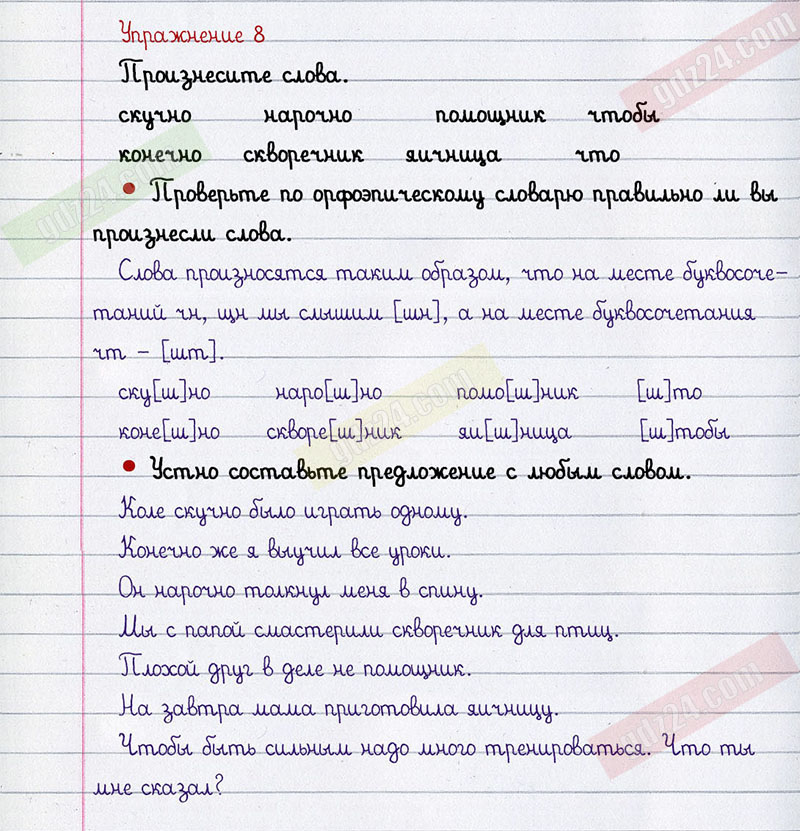 Упражнение 8
Произнесите слова.
скучно нарочно помощник чтобы
конечно скворечник яичница что
• Проверьте по орфоэпическому словарю правильно ли вы
произнесли слова.
Слова произносятся таким образом, что на месте буквосоче-
таний чн, щн мы слышим [шн], а на месте буквосочетания
чт - [шт].
ску[ш]но наро[ш]но помо[ш]ник [ш]то
коне[ш]но скворе[ш]ник яи[ш]ница [ш]тобы
• Устно составьте предложение с любым словом.
Коле скучно было играть одному.
Конечно же я выучил все уроки.
Он нарочно толкнул меня в спину.
Мы с папой смастерили скворечник для птиц.
Плохой друг в деле не помощник.
На завтра мама приготовила яичницу.
Чтобы быть сильным надо много тренироваться. Что ты
мне сказал?
gdz24.com
gdz24.com
gdz24.com
gdz24.com